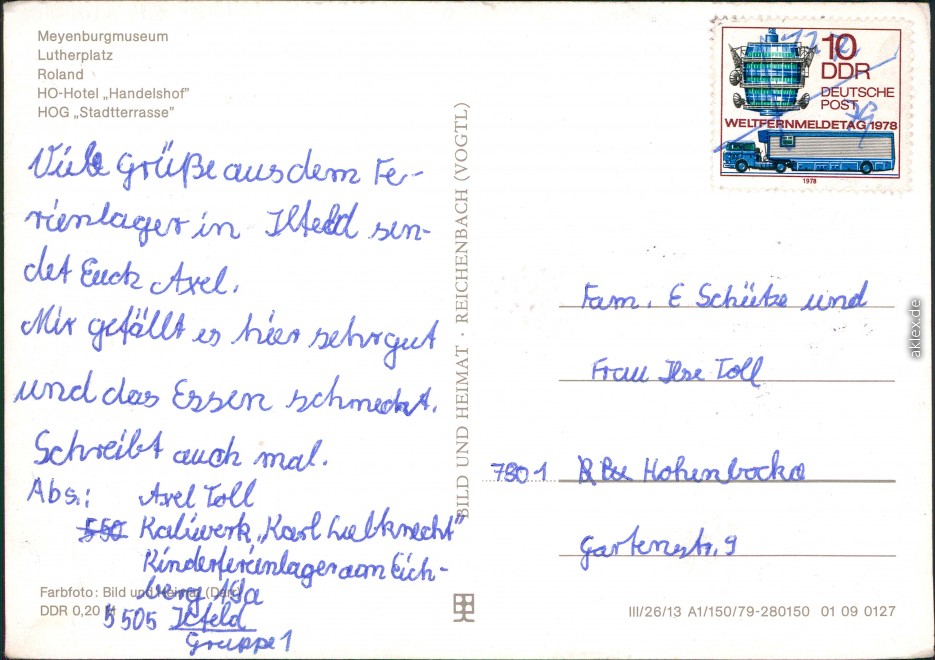 Meyenburgmuseum
Lutherplatz
Roland
HO-Hotel „Handelshof”
HOG „Stadtterrasse”
10
DDR
DEUTSCHE
POST
WELTFERNMELDETAG 1978
1978
Viele Grüße aus dem Fe-
rienlager in Ilfeld sen-
det Euch Axel.
Mir gefällt es hier sehr gut
und das Essen schmeckt.
Schreibt auch mal.
Abs.: Axel Toll
550 Kaliwerk „Karl Liebknecht”
Kinderferienlager am Eich-
berg
5505 Ilfeld
Gruppe 1
Farbfoto: Bild und Heimat
DDR 0,20 M
BILD UND HEIMAT · REICHENBACH (VOGTL)
Fam. E Schütze und
Frau Ilse Toll
7801 Hohenbocka
Gartenstr. 9
III/26/13 A1/150/79-280150 01 09 0127
aklex.de